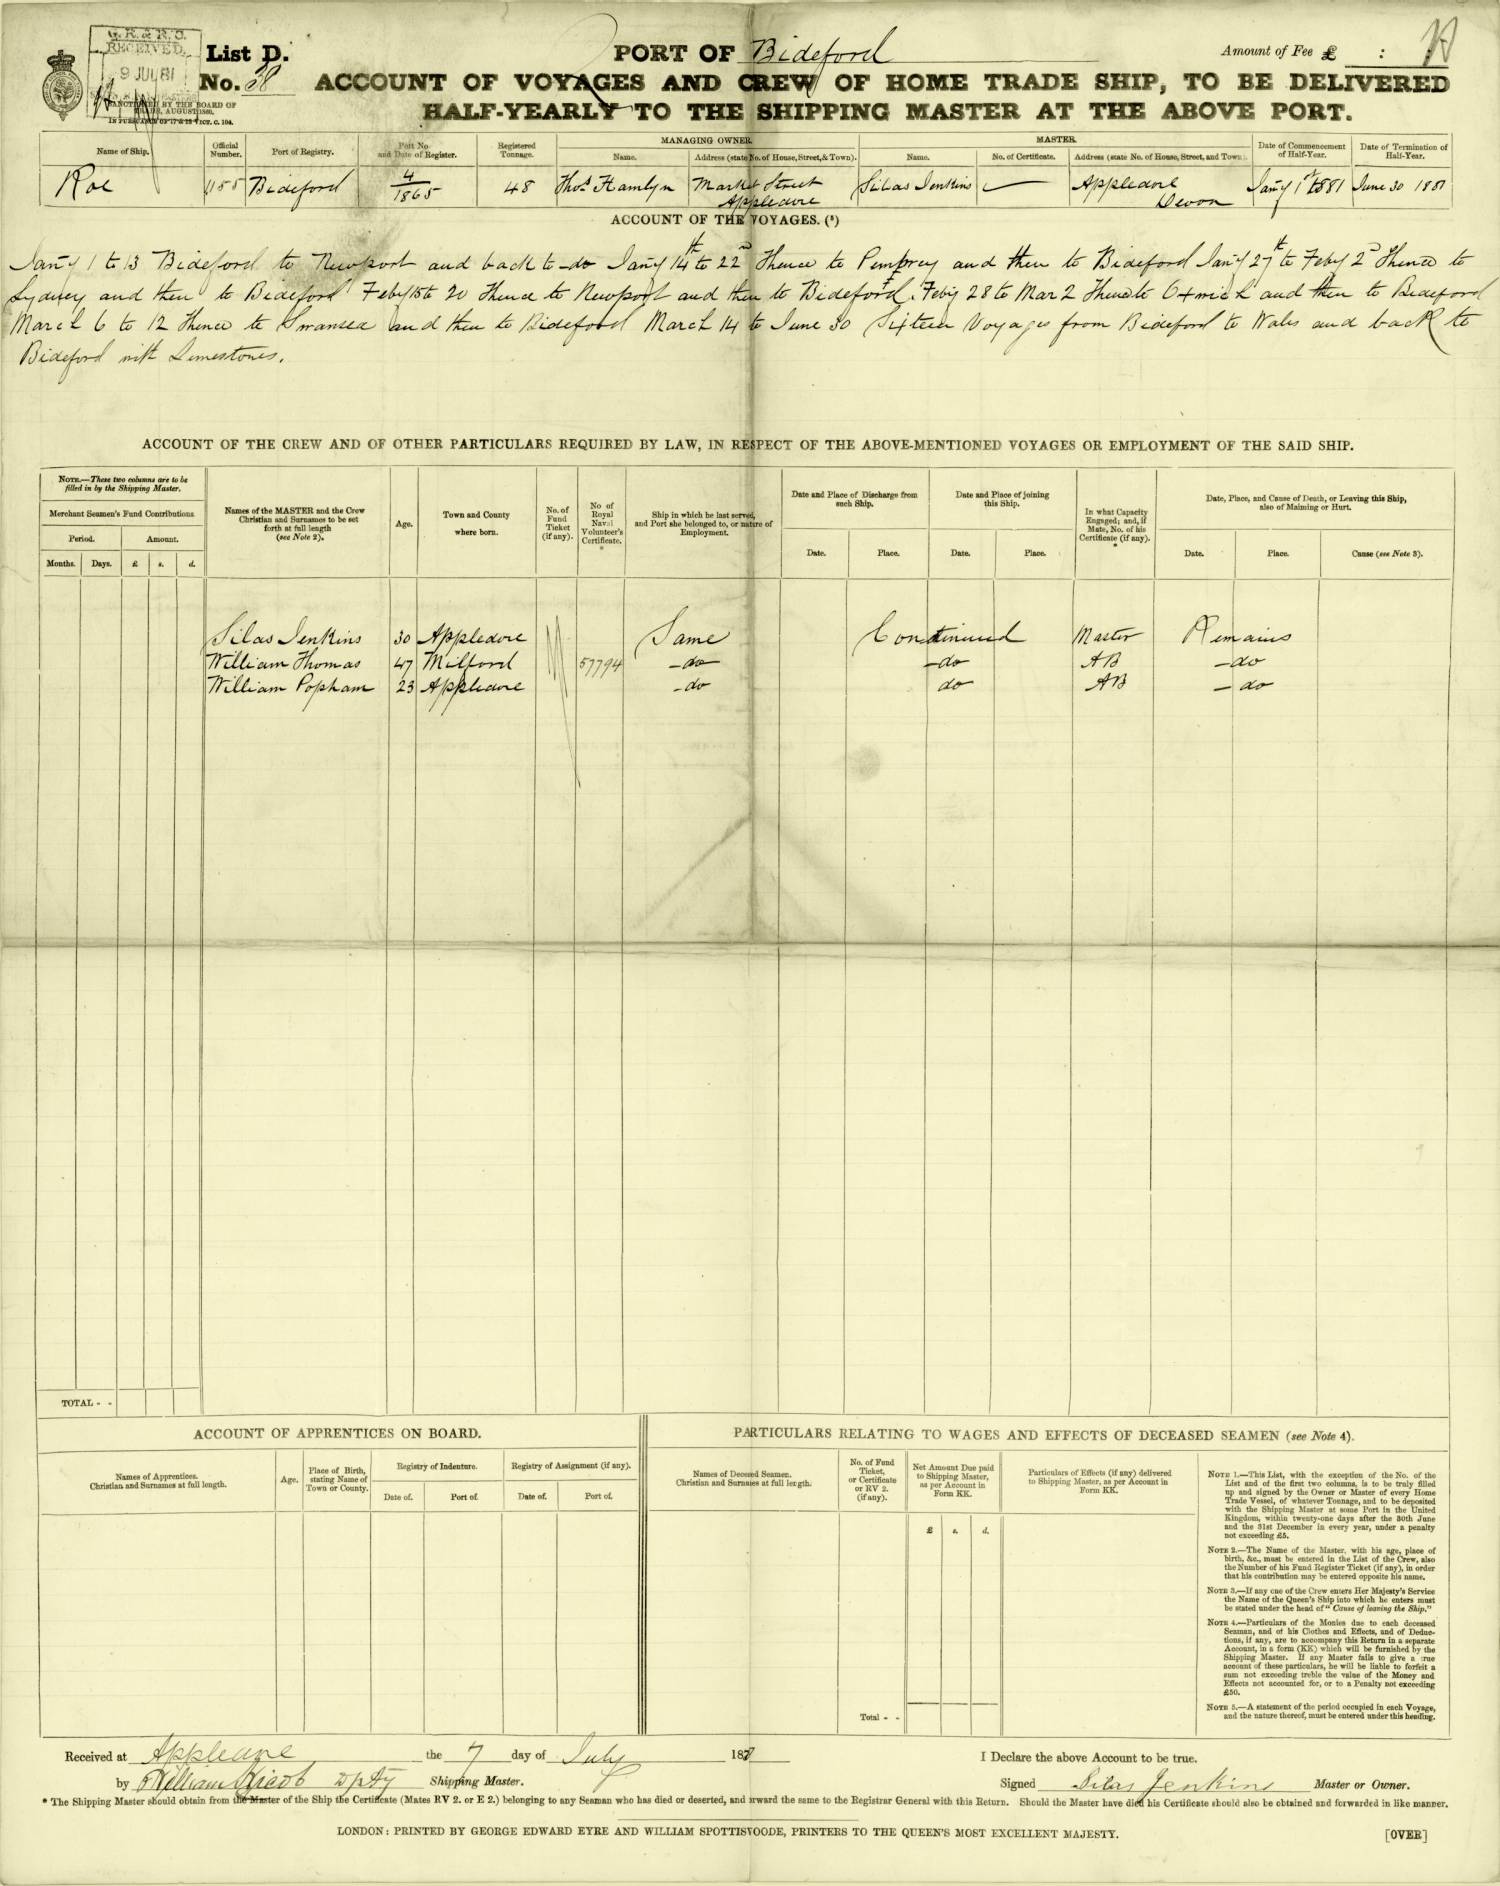 G. R. & R. O.
RECEIVED
9 JUL 81
SANCTIONED BY THE BOARD OF
TRADE, AUGUST 1880,
IN PURSUANCE OF 17 & 18 VICT. C. 104.
List D.
No. 38
PORT OF Bideford
Amount of Fee £ :
ACCOUNT OF VOYAGES AND CREW OF HOME TRADE SHIP, TO BE DELIVERED
HALF-YEARLY TO THE SHIPPING MASTER AT THE ABOVE PORT.
Name of Ship. Official Number. Port of Registry. Port No. and Date of Register. Registered Tonnage. MANAGING OWNER. Name. Address (state No. of House, Street, & Town). MASTER. Name. No. of Certificate. Address (state No. of House, Street, and Town). Date of Commencement of Half-Year. Date of Termination of Half-Year.
Roe 1155 Bideford 4/1865 48 Thos Hamlyn Market Street Appledore Silas Jenkins Appledore Devon Jany 1st 1881 June 30 1881
ACCOUNT OF THE VOYAGES. (5)
Jany 1 to 13 Bideford to Newport and back to do Jany 14th to 22nd Thence to Pembrey and then to Bideford Jany 27th to Feby 2nd Thence to
Lydney and then to Bideford Feby 15 to 20 Thence to Newport and then to Bideford. Feby 28 to Mar 2 Thence to and then to Bideford
March 6 to 12 Thence to Swansea and then to Bideford March 14 to June 30 Sixteen Voyages from Bideford to Wales and back to
Bideford with Limestones.
ACCOUNT OF THE CREW AND OF OTHER PARTICULARS REQUIRED BY LAW, IN RESPECT OF THE ABOVE-MENTIONED VOYAGES OR EMPLOYMENT OF THE SAID SHIP.
NOTE.—These two columns are to be filled in by the Shipping Master.
Merchant Seamen's Fund Contributions
Period. Amount.
Months. Days. £ s. d.
Names of the MASTER and the Crew Christian and Surnames to be set forth at full length (see Note 2).
Age.
Town and County where born.
No. of Fund Ticket (if any).
No of Royal Naval Volunteer's Certificate. *
Ship in which he last served, and Port she belonged to, or nature of Employment.
Date and Place of Discharge from such Ship.
Date. Place.
Date and Place of joining this Ship.
Date. Place.
In what Capacity Engaged; and, if Mate, No. of his Certificate (if any). *
Date, Place, and Cause of Death, or Leaving this Ship, also of Maiming or Hurt.
Date. Place. Cause (see Note 3).
Silas Jenkins 30 Appledore Same Continued Master Remains
William Thomas 47 Milford 57794 do do AB do
William Popham 23 Appledore do do AB do
TOTAL - -
ACCOUNT OF APPRENTICES ON BOARD.
Names of Apprentices. Christian and Surnames at full length.
Age.
Place of Birth, stating Name of Town or County.
Registry of Indenture. Date of. Port of.
Registry of Assignment (if any). Date of. Port of.
PARTICULARS RELATING TO WAGES AND EFFECTS OF DECEASED SEAMEN (see Note 4).
Names of Deceased Seamen. Christian and Surnames at full length.
No. of Fund Ticket, or Certificate or RV 2. (if any).
Net Amount Due paid to Shipping Master, as per Account in Form KK.
£ s. d.
Particulars of Effects (if any) delivered to Shipping Master, as per Account in Form KK.
Total - -
NOTE 1.—This List, with the exception of the No. of the
List and of the first two columns, is to be truly filled
up and signed by the Owner or Master of every Home
Trade Vessel, of whatever Tonnage, and to be deposited
with the Shipping Master at some Port in the United
Kingdom, within twenty-one days after the 30th June
and the 31st December in every year, under a penalty
not exceeding £5.
NOTE 2.—The Name of the Master, with his age, place of
birth, &c., must be entered in the List of the Crew, also
the Number of his Fund Register Ticket (if any), in order
that his contribution may be entered opposite his name.
NOTE 3.—If any one of the Crew enters Her Majesty's Service
the Name of the Queen's Ship into which he enters must
be stated under the head of "Cause of leaving the Ship."
NOTE 4.—Particulars of the Monies due to each deceased
Seaman, and of his Clothes and Effects, and of Deduc-
tions, if any, are to accompany this Return in a separate
Account, in a form (KK) which will be furnished by the
Shipping Master. If any Master fails to give a true
account of these particulars, he will be liable to forfeit a
sum not exceeding treble the value of the Money and
Effects not accounted for, or to a Penalty not exceeding
£50.
NOTE 5.—A statement of the period occupied in each Voyage,
and the nature thereof, must be entered under this heading.
Received at Appledore the 7 day of July 187
by William Jacob Dpty Shipping Master.
I Declare the above Account to be true.
Signed Silas Jenkins Master or Owner.
* The Shipping Master should obtain from the Master of the Ship the Certificate (Mates RV 2. or E 2.) belonging to any Seaman who has died or deserted, and forward the same to the Registrar General with this Return. Should the Master have died his Certificate should also be obtained and forwarded in like manner.
LONDON: PRINTED BY GEORGE EDWARD EYRE AND WILLIAM SPOTTISWOODE, PRINTERS TO THE QUEEN'S MOST EXCELLENT MAJESTY.
[OVER]